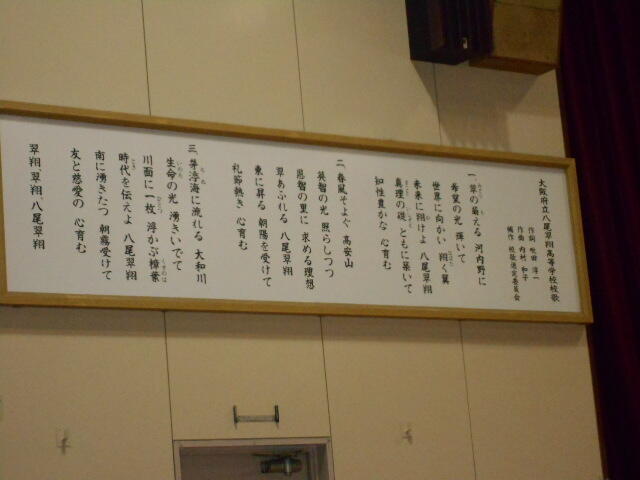 大阪府立八尾翠翔高等学校校歌
作詞 吹田 淳一
作曲 内村 和子
補作 校歌選定委員会
一、翠の萌える 河内野に
希望の光 輝いて
世界に向かい 翔く翼
未来に翔けよ 八尾翠翔
真理の礎 ともに築いて
知性豊かな 心育む
二、春風そよぐ 高安山
英智の光 照らしつつ
恩智の里に 求める理想
翠あふれる 八尾翠翔
東に昇る 朝陽を受けて
礼節熱き 心育む
三、茅渟海に流れる 大和川
生命の光 湧きいでて
川面に一枚 浮かぶ樟葉
時代を伝えよ 八尾翠翔
南に湧きたつ 朝霧受けて
友と慈愛の 心育む
翠翔 翠翔 八尾翠翔